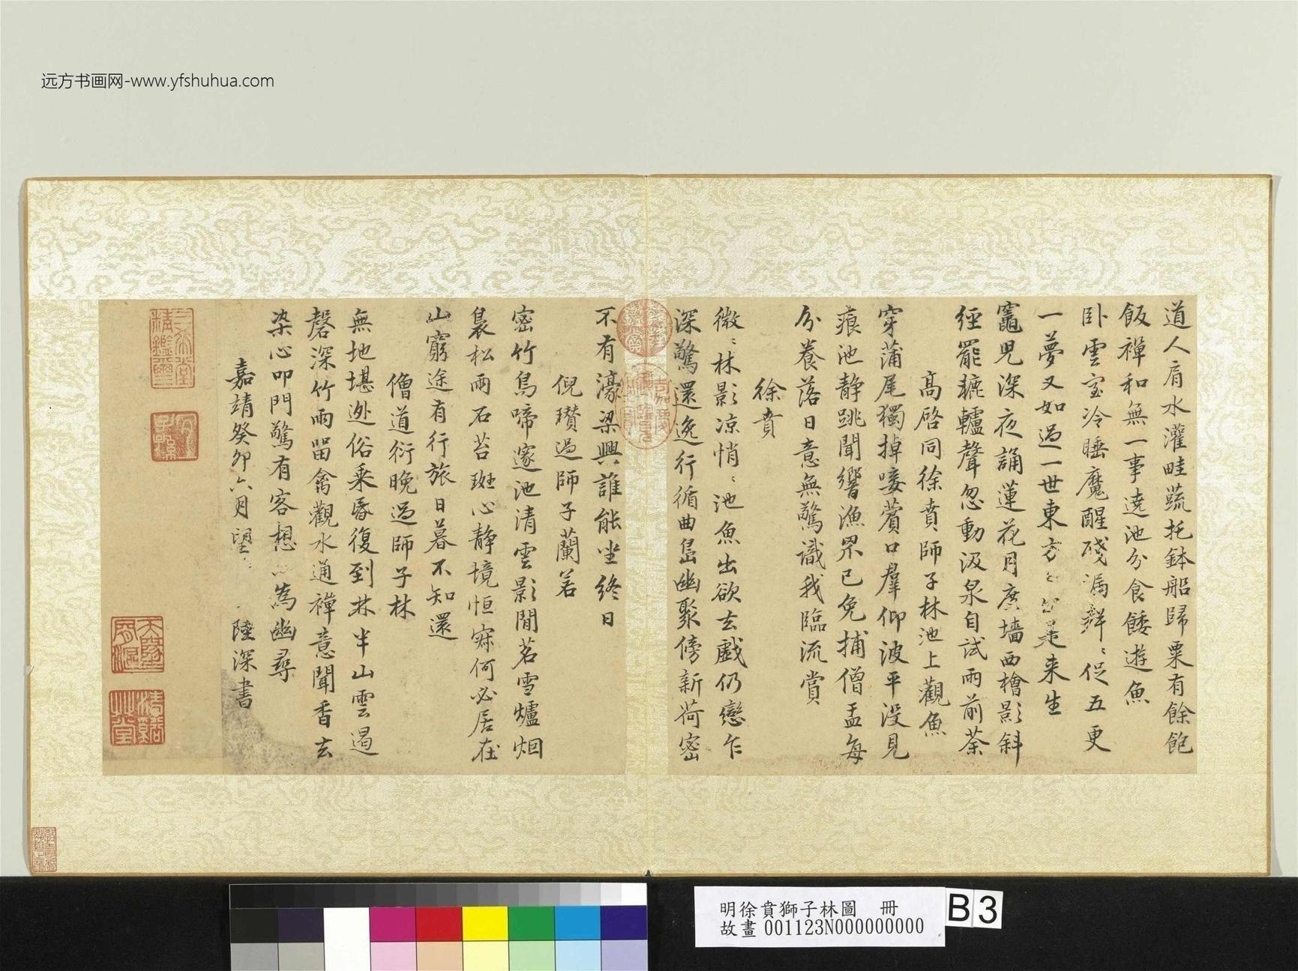 远方书画网-www.yfshuhua.com
道人肩水灌畦蔬托鉢船歸粟有餘飽
飯禪和無一事遶池分食餧遊魚
卧雲室冷睡魔醒殘漏鼕鼕促五更
一夢又如過一世東方是来生
竈児深夜誦蓮花月度墻西檜影斜
經罷轆轤聲忽動汲泉自試雨前茶
高啓同徐賁師子林池上觀魚
穿蒲尾獨掉唼薲口羣仰波平没見
痕池静跳聞響漁罘已免捕僧盂每
分養落日意無驚識我臨流賞
徐賁
微〻林影凉悄〻池魚出欲去戲仍戀乍
深驚還逸行循曲島幽聚傍新荷密
不有濠梁興誰能坐終日
倪瓚過師子蘭若
密竹鳥啼邃池清雲影閒茗雪爐烟
裊松雨石苔斑心静境恒寂何必居在
山窮途有行旅日暮不知還
僧道衍晚過師子林
無地堪迯俗乘昏復到林半山雲遏
磬深竹雨留禽觀水通禪意聞香去
染心叩門驚有客想為幽尋
嘉靖癸卯六月望 陸深書
明徐賁獅子林圖 冊
故畫 001123N000000000
B3